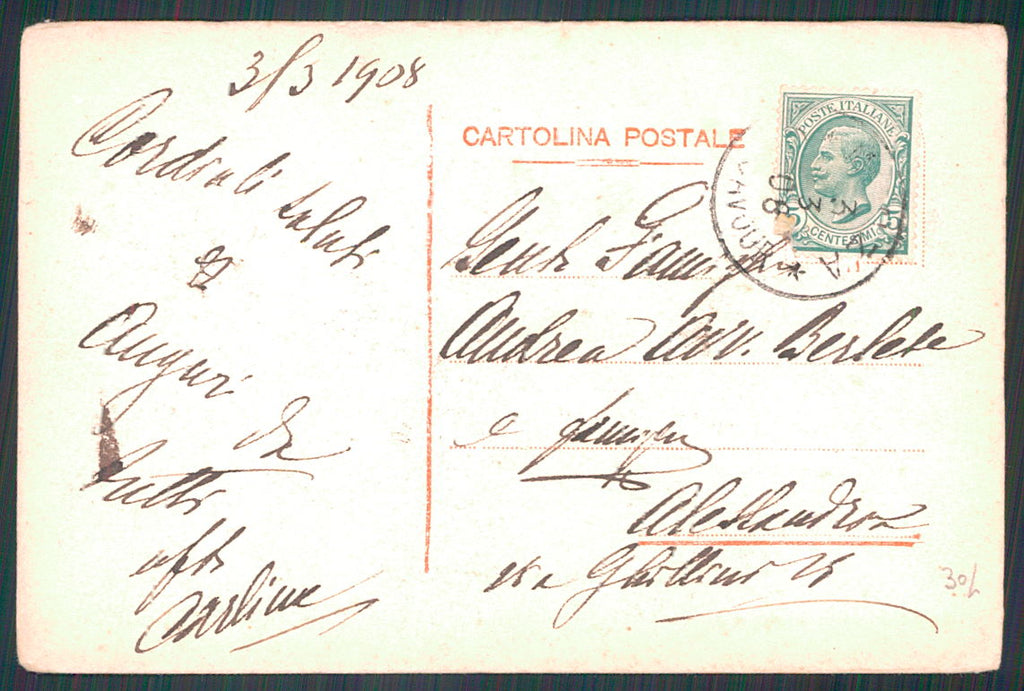 3/3 1908
Cordiali saluti
e
Auguri da
tutti
Carlina
CARTOLINA POSTALE
POSTE ITALIANE
5 5
CENTESIMI
3. 3 08
Gent. Famiglia
Andrea Avv.
e famiglia
Alessandria
via Ghilini
30L